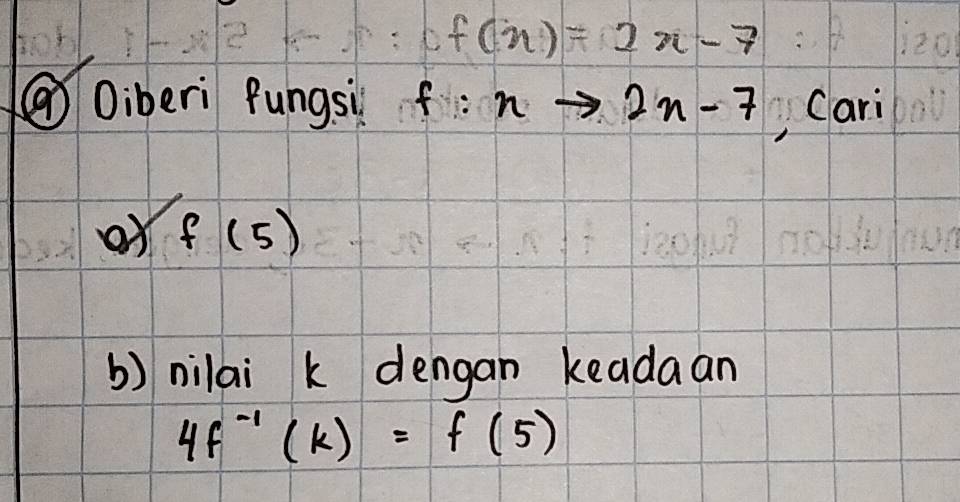 f(x) = 2x - 7
9 Diberi fungsi f : x → 2x - 7, Cari
a) f (5)
b) nilai k dengan keadaan
4f⁻¹ (k) = f (5)